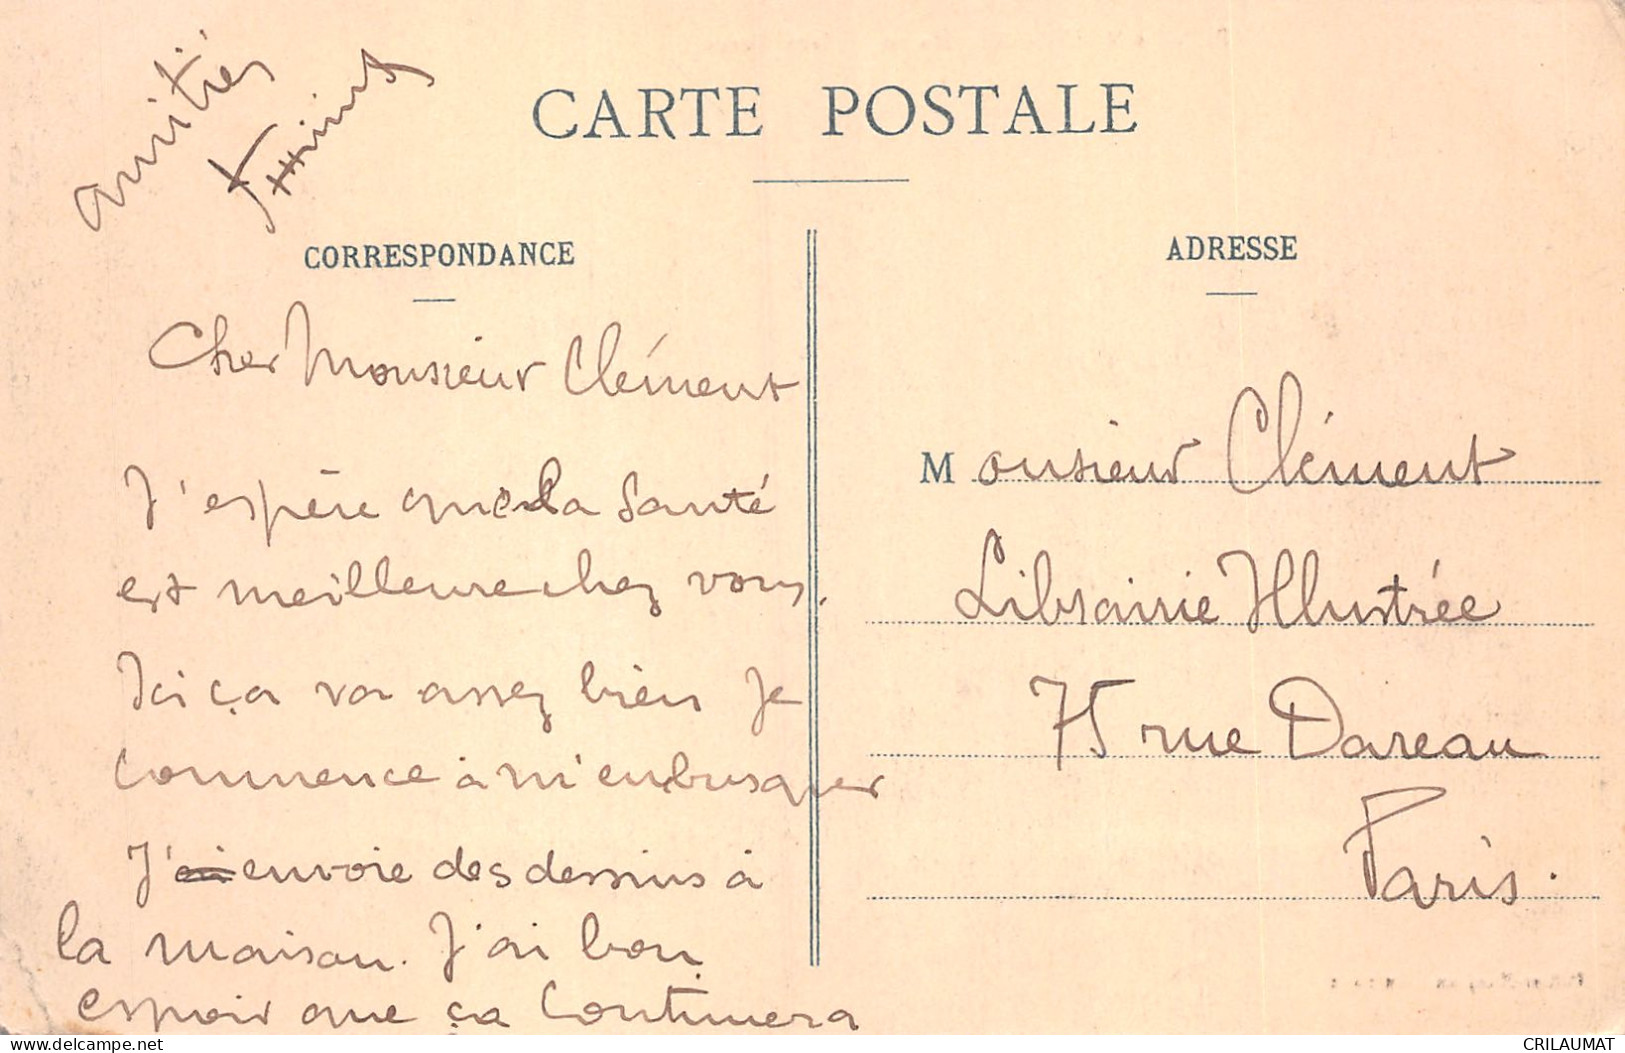 amitiés
CARTE POSTALE
CORRESPONDANCE
Cher Monsieur Clément
J'espère que la santé
est meilleure chez vous.
Ici ça va assez bien Je
commence à m'embusquer
J'envoie des dessins à
la maison. J'ai bon
espoir que ça continuera
ADRESSE
Monsieur Clément
Librairie Illustrée
75 rue Dareau
Paris.
delcampe.net
CRILAUMAT